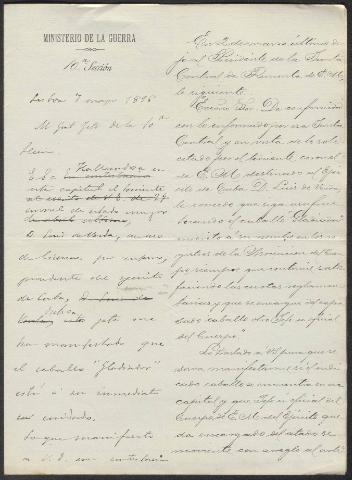 MINISTERIO DE LA GUERRA
10ª Sección
Lisboa 7 mayo 1896
M Gral Jefe de la 10ª
Secn
E. S.: Hallandose en
esta capital el teniente
coronel de estado mayor
D. Luis de
de licencia, por enfermo,
procedente del ejército
de Cuba,
dicho jefe me
ha manifestado que
el caballo "Gladiador"
está á su inmediato
cuidado.
Lo que manifiesto
á V. E. en contestación
En 2 de marzo último di
jo al Presidente de la Junta
Central de Remonta de E. M.
lo siguiente
Excmo Sor: De conformidad
con lo informado por esa Junta
Central y en vista de lo soli
citado por el teniente coronel
de E. M. destinado al Ejér
cito de Cuba D. Luis de
he concedido que siga usufruc
tuando el caballo "Gladiador"
inscrito á su nombre en los re
gistros de la
siempre que continúe satis
faciendo las cuotas reglamen
tarias y que se encargue del expre
sado caballo otro Jefe ú oficial
del Cuerpo."
Lo traslado á V. E. para que se
sirva manifestarme si el indi
cado caballo se encuentra en esa
capital y que Jefe ú oficial del
Cuerpo de E. M. del Ejército que
da encargado del
con arreglo al artí